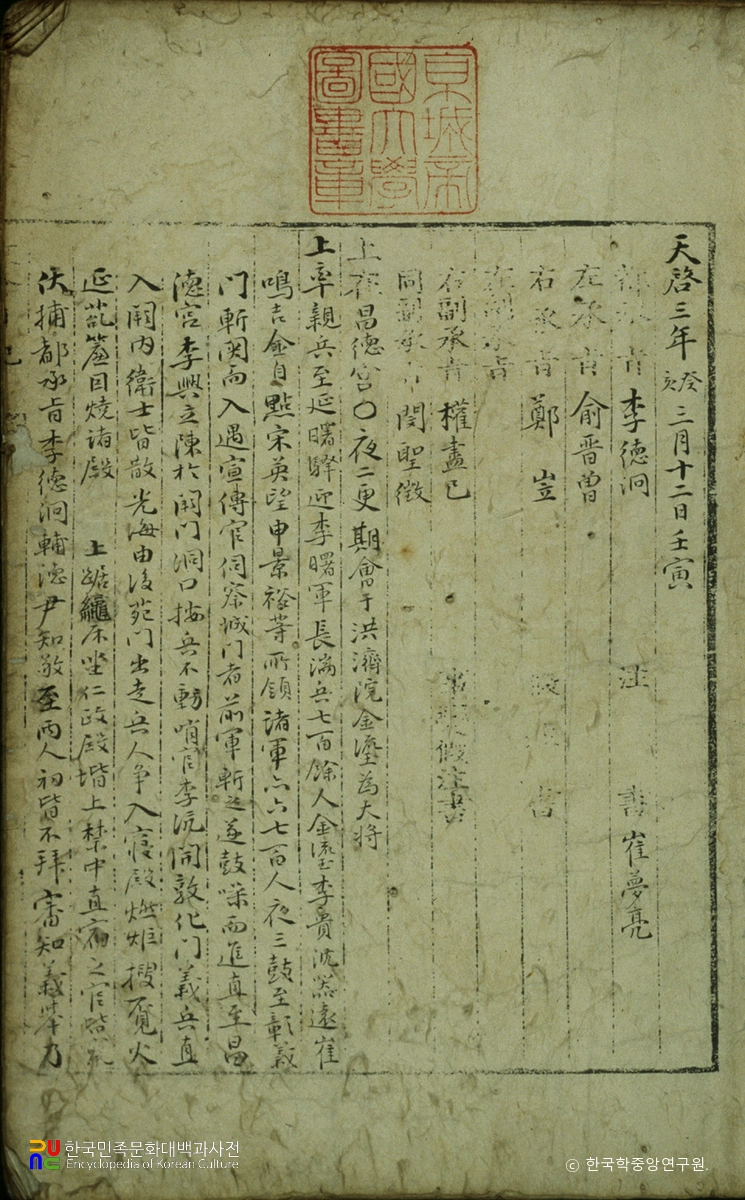 京城帝
國大學
圖書章
天啓三年癸亥三月十二日壬寅
都承旨 李德泂 注 書 崔夢亮
左承旨 俞晋曾
右承旨 鄭岦 假注書
左副承旨
右副承旨 權盡己 事變假注書
同副承旨 閔聖徵
上在昌德宮○夜二更期會于洪濟院金瑬為大將
上率親兵至延曙驛迎李曙軍長湍兵七百餘人金瑬李貴沈器遠崔
鳴吉金自點宋英望申景裕等所領諸軍亦六七百人夜三鼓至彰義
門斬關而入遇宣傳官伺察城門者前軍斬之遂鼓噪而進直至昌
德宮李興立陳於闕門洞口按兵不動哨官李沆開敦化門義兵直
入闕內衛士皆散光海由後苑門出走兵人爭入寢殿燃炬搜覓火
延 簾因燒諸殿 上踞繩床坐仁政殿堦上禁中直宿之官皆
伏捕都承旨李德泂輔德尹知敬至兩人初皆不拜審知義擧乃
한국민족문화대백과사전
Encyclopedia of Korean Culture
© 한국학중앙연구원.